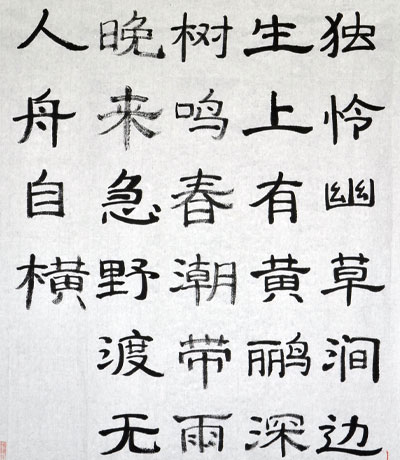 独怜幽草涧边
生上有黄鹂深
树鸣春潮带雨
晚来急野渡无
人舟自横